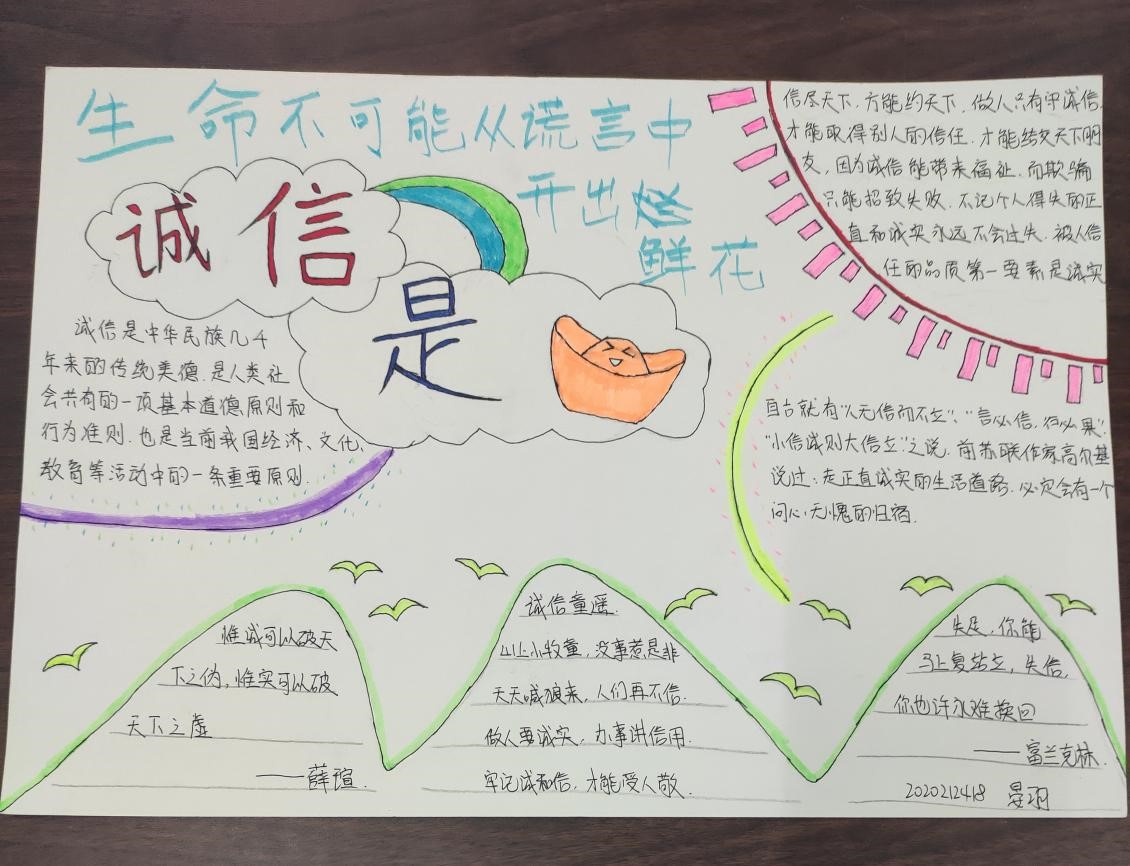 生命不可能从谎言中
开出
鲜花
诚信
是
诚信是中华民族几千
年来的传统美德.是人类社
会共有的一项基本道德原则和
行为准则.也是当前我国经济、文化、
教育等活动中的一条重要原则.
信尽天下.方能约天下.做人只有守诚信.
才能取得别人的信任.才能结交天下朋
友,因为诚信能带来福祉.而欺骗
只能招致失败.不记个人得失的正
直和诚实永远不会过失.被人信
任的品质第一要素是诚实
自古就有"人无信而不立"、"言必信,行必果";
"小信诚则大信立"之说.前苏联作家高尔基
说过:走正直诚实的生活道路.必定会有一个
问心无愧的归宿.
惟诚可以破天
下之伪,惟实可以破
天下之虚
——薛瑄.
诚信童谣.
山上小牧童,没事惹是非
天天喊狼来,人们再不信.
做人要诚实,办事讲信用.
牢记诚和信,才能受人敬.
失足,你能
马上复站立,失信,
你也许永难挽回
——富兰克林.
2020212418 晏玥